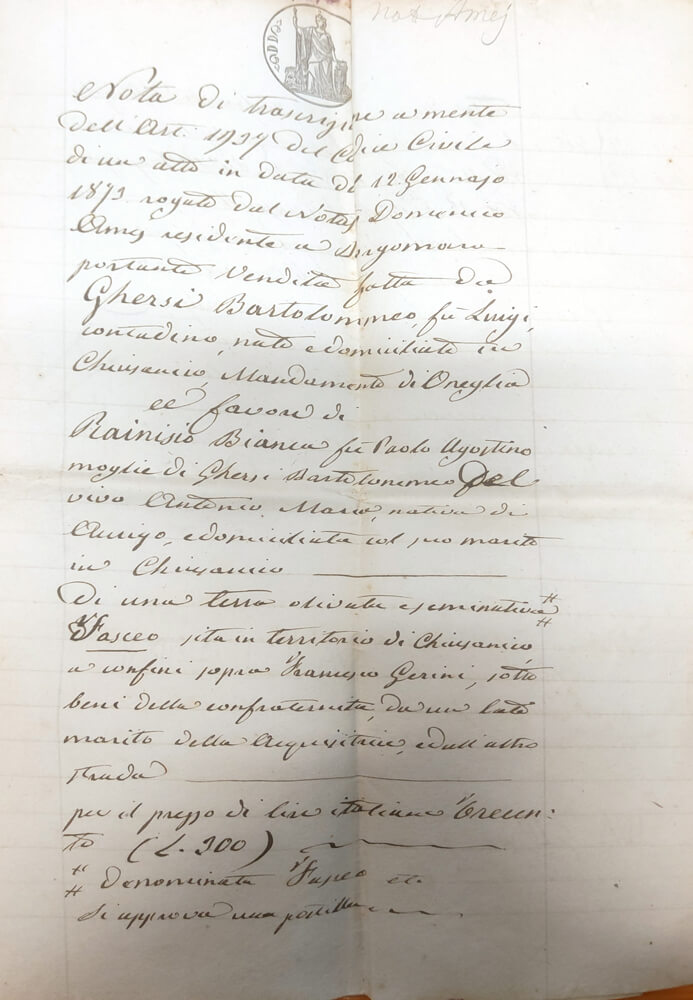 Not. Amej
Nota di trascrizne a mente
dell'Art. 1937 del Codice Civile
di un atto in data del 12. Gennajo
1873 rogato dal Notaj Domenico
Amej residente a Borgomaro
portante Vendita fatta da
Ghersi Bartolommeo, fu Luigi,
contadino, nato e domiciliato in
Chiusanico, Mandamento di Oneglia
a favore di
Rainisio Bianca fu Paolo Agostino
moglie di Ghersi Bartolommeo del
vivo Antonio Maria, nativa di
Aurigo, e domiciliata col suo marito
in Chiusanico
Di una terra olivata e seminativa #
Fasceo sita in territorio di Chiusanico,
a confini sopra Francesco Gerini, sotto
beni della confraternita, da un lato
marito della Acquisitrice, e dall'altro
strada
per il prezzo di lire italiane Trecen:
to (L. 300)
# Denominata Fasceo etc
Si approva una postilla